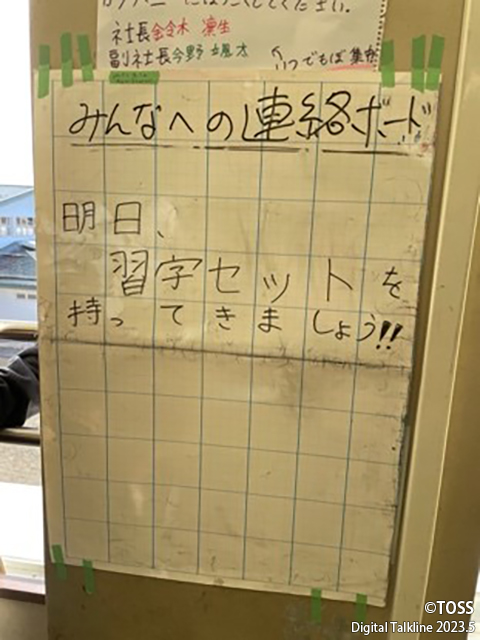 社長 鈴木 凛生
副社長 今野 颯太
いつでもぼ集中
みんなへの連絡ボード
明日、
習字セットを
持ってきましょう!!
©TOSS
Digital Talkline 2023.5